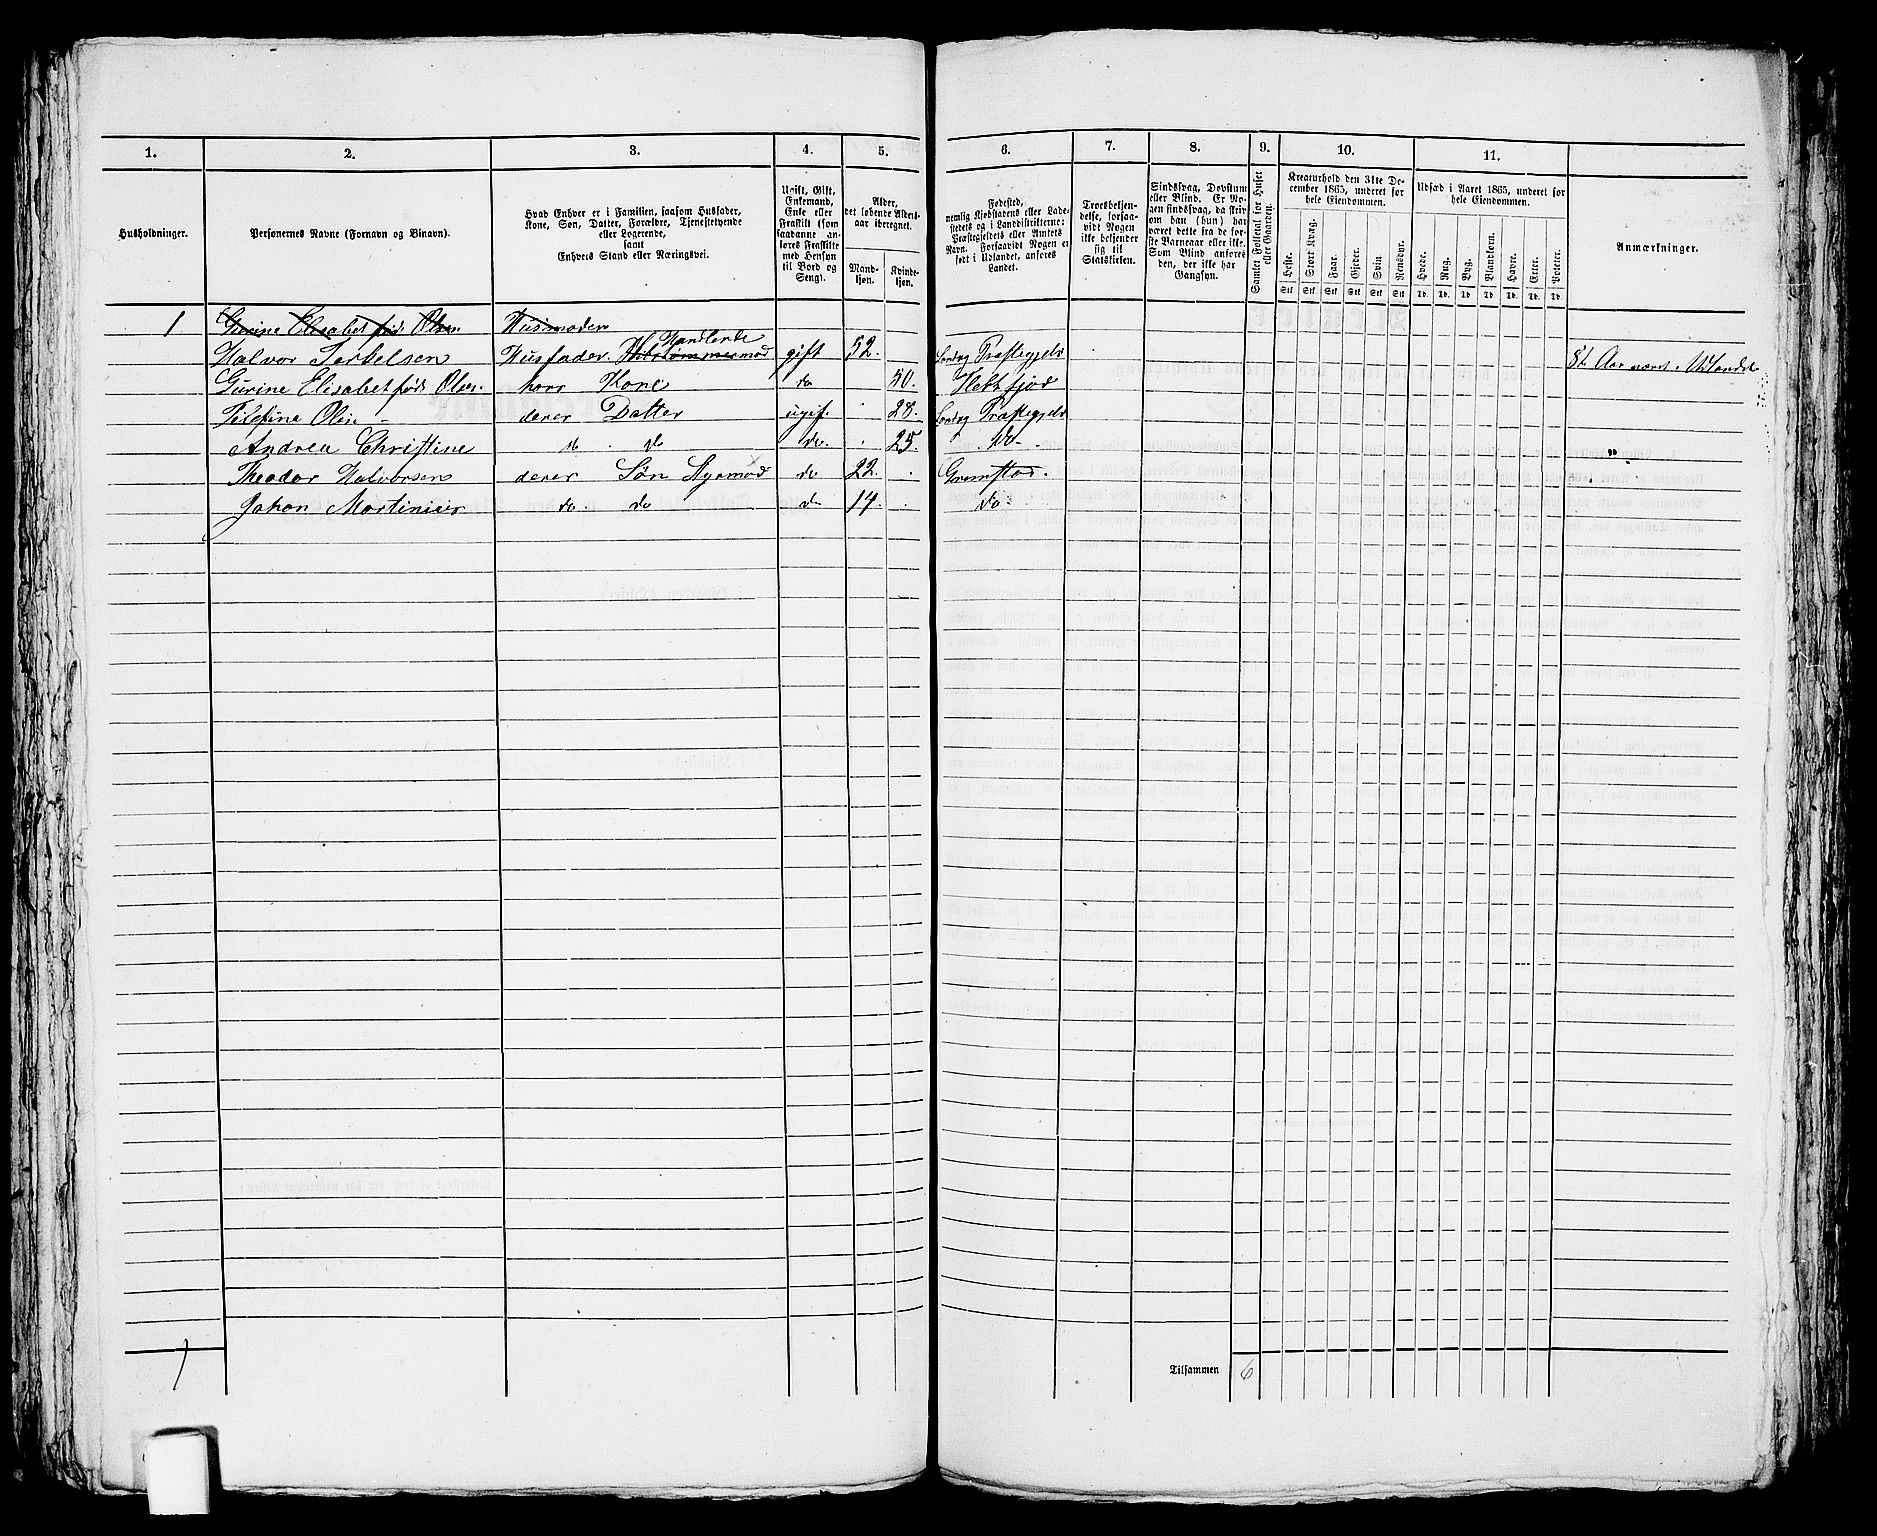 1. 2. 3. 4. 5. 6. 7. 8. 9. 10. 11.
Husholdninger.
Personernes Navne (Fornavn og Binavn).
Hvad Enhver er i Familien, saasom Husfader,
Kone, Søn, Datter, Forældre, Tjenestetyende
eller Logerende,
samt
Enhvers Stand eller Næringsvei.
Ugift, Gift,
Enkemand,
Enke eller
Fraskilt (som
saadanne anføres
Fraskilte
med Hensyn
til Bord og
Seng).
Alder,
det løbende Aldersaar
iberegnet.
Mandkjøn.
Kvindekjøn.
Fødested,
nemlig Kjøbstadens eller Ladestedets
og i Landdistrikterne:
Præstegjeldets eller Amtets
Navn. Forsaavidt Nogen er
født i Udlandet, anføres
Landet.
Troesbekjendelse,
forsaavidt
Nogen
ikke bekjender
sig til
Statskirken.
Sindssvag, Døvstum
eller Blind. Er Nogen
sindssvag, da skriv
om han (hun) har
været dette fra de første
Barneaar eller ikke.
Som Blind anføres
den, der ikke har
Gangsyn.
Samlet Folketal for Huset
eller Gaarden.
Kreaturhold den 31te December
1865, underet for
hele Eiendommen.
Heste. Stort Kvæg. Faar. Gjeder. Svin. Rensdyr.
Stk Stk Stk Stk Stk Stk
Udsæd i Aaret 1865, underet for
hele Eiendommen.
Hvede. Rug. Byg. Blandkorn. Havre. Erter. Poteter.
Td. Td. Td. Td. Td. Td. Td.
Anmærkninger.
1 Gurine Elisabet født Olsen Husmoder
Halvor Terkelsen Husfader. Handlende gift 52. Præstegjeld 8t Aar været i Udlandet
Gurine Elisabet født Olsn. hans Kone do 50.
Olsn derer Datter ugif. 28. Præstegjeld
Andrea Christine do. do do. 25. Do
Theodor Halvorsen derer Søn Styrmad do 22. Gremstad.
Johan Martinius do. do do 14. do
1
Tilsammen 6